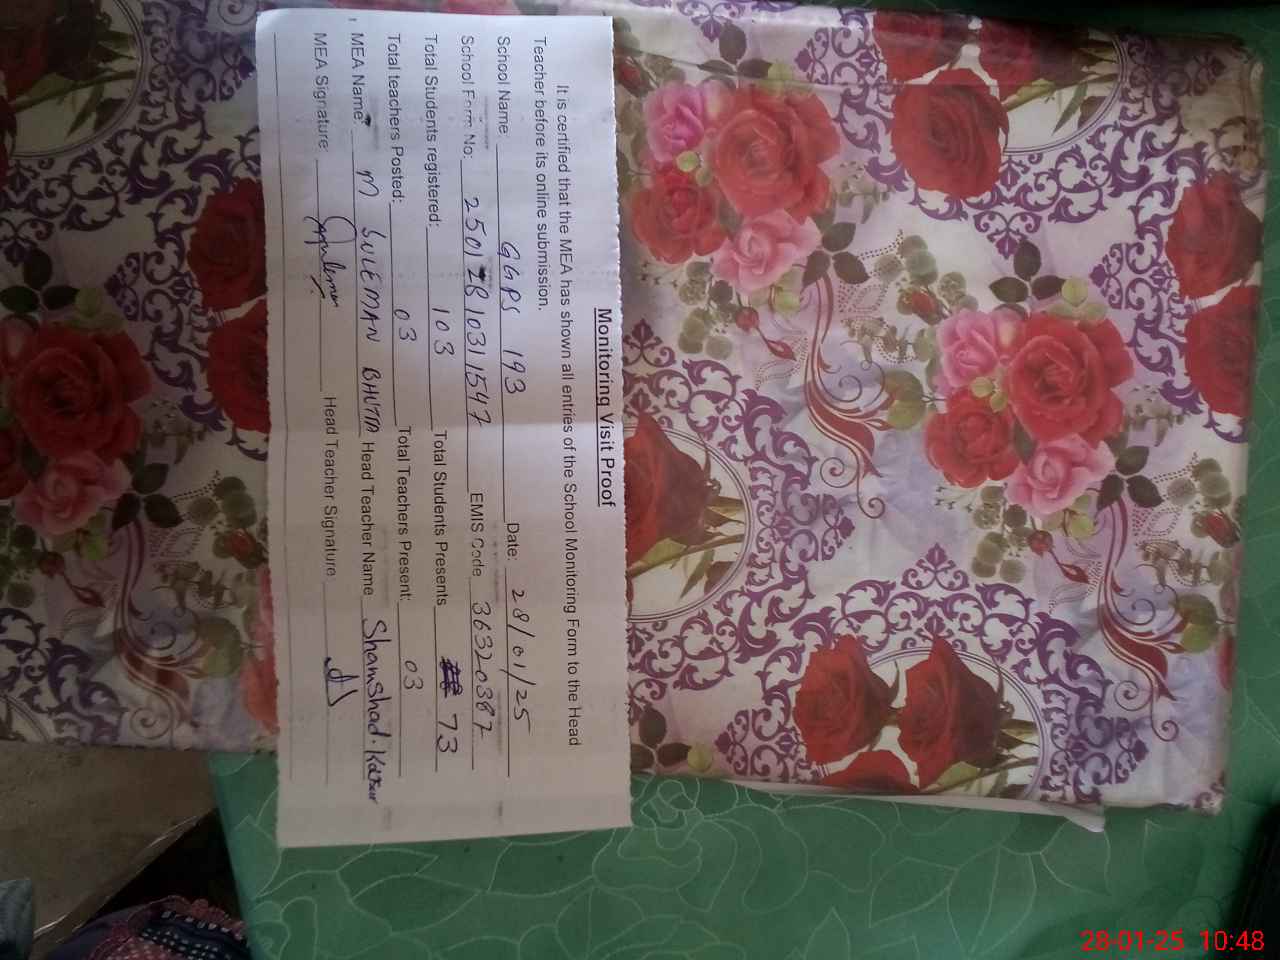 Monitoring Visit Proof
It is certified that the MEA has shown all entries of the School Monitoring Form to the Head
Teacher before its online submission.
School Name: GGPS 193 Date: 28/01/25
School Form No: 2501281031547 EMIS Code 36320387
Total Students registered: 103 Total Students Presents 73
Total teachers Posted: 03 Total Teachers Present: 03
MEA Name: M SULEMAN BHUTTA Head Teacher Name Shamshad.
MEA Signature: Head Teacher Signature
28-01-25 10:48